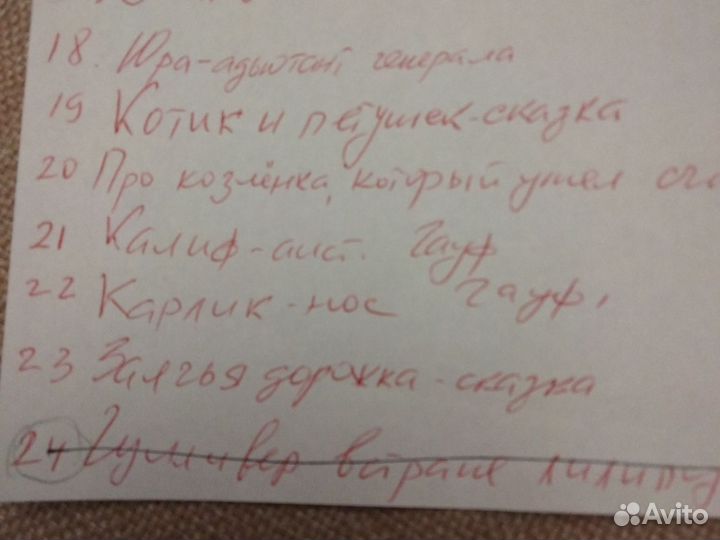 18. Юра-адьютант генерала
19 Котик и петушек-сказка
20 Про козлёнка, который умел сч
21 Калиф-аист. Гауф
22 Карлик-нос Гауф,
23 Заячья дорожка-сказка
24 Гулливер в стране лилипу
Avito